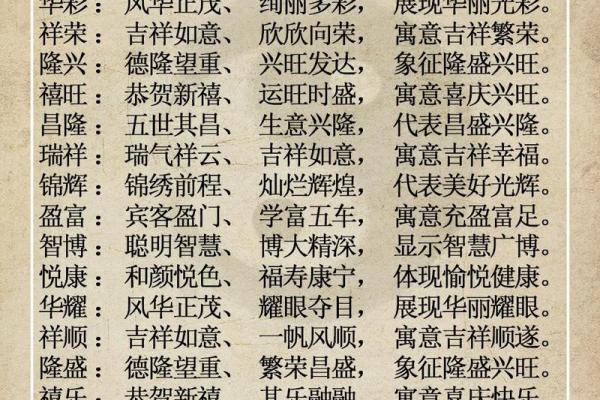 华彩：风华正茂、绚丽多彩，展现华丽光彩。
祥荣：吉祥如意、欣欣向荣，寓意吉祥繁荣。
隆兴：德隆望重、兴旺发达，象征隆盛兴旺。
禧旺：恭贺新禧、运旺时盛，寓意喜庆兴旺。
昌隆：五世其昌、生意兴隆，代表昌盛兴隆。
瑞祥：瑞气祥云、吉祥如意，寓意吉祥幸福。
锦辉：锦绣前程、灿烂辉煌，代表美好光辉。
盈富：宾客盈门、学富五车，寓意充盈富足。
智博：聪明智慧、博大精深，显示智慧广博。
悦康：和颜悦色、福寿康宁，体现愉悦健康。
华耀：风华正茂、耀眼夺目，展现华丽耀眼。
祥顺：吉祥如意、一帆风顺，寓意吉祥顺遂。
隆盛：德隆望重、繁荣昌盛，象征隆盛兴旺。
禧乐：恭贺新禧、其乐融融，寓意喜庆快乐。